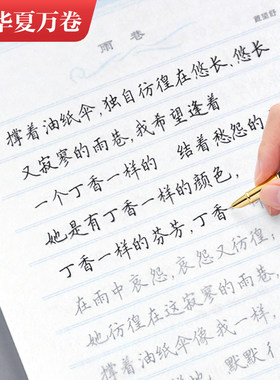 华夏万卷
雨巷
戴望舒
撑着油纸伞,独自彷徨在悠长,悠长
又寂寥的雨巷,我希望逢着
一个丁香一样的 结着愁怨的
她是有丁香一样的颜色,
丁香一样的芬芳,丁香
在雨中哀怨,哀怨又彷徨,
她彷徨在这寂寥的雨巷
撑着油纸伞像我一样,
默默彳